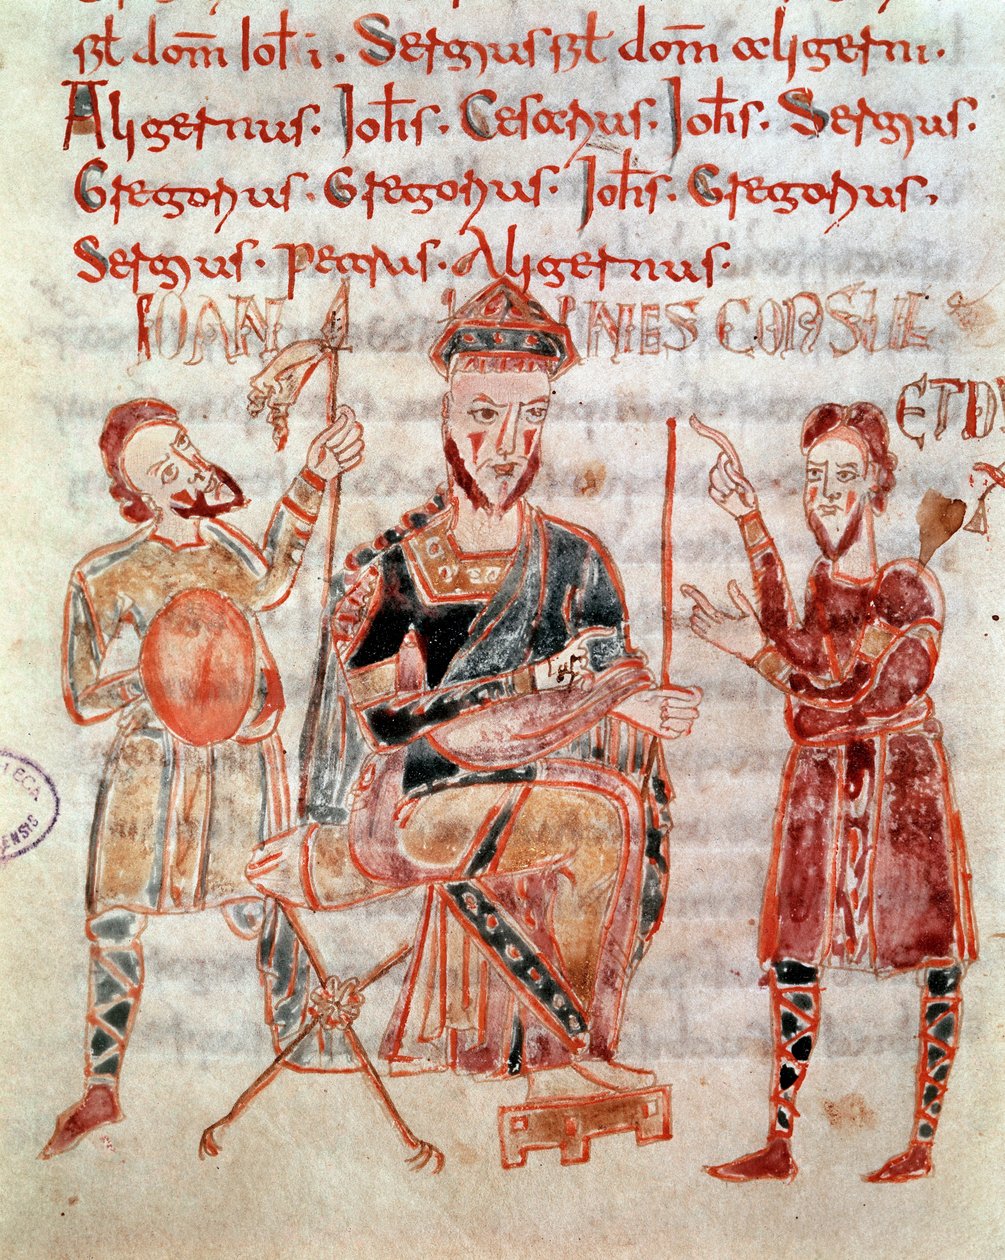 sƀt dom̄ loti. Sergius sƀt dom̄ aligerni.
Aligernus. Joħs. Cesarius. Joħs. Sergius.
Gregorius. Gregorius. Joħs. Gregorius.
Sergius. petrus. Aligernus.
IOANNES CONSUL
ET DU
X
LECA
ENSIS